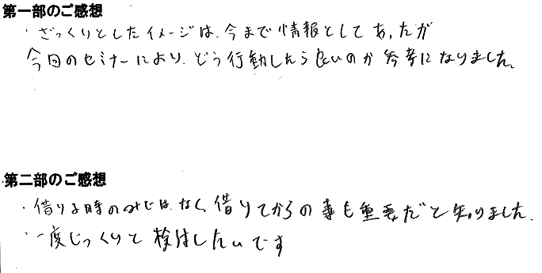 第一部のご感想
・ざっくりとしたイメージは、今まで情報としてあったが
今回のセミナーにより、どう行動したら良いのか参考になりました。
第二部のご感想
・借りる時のみではなく、借りてからの事も重要だと知りました。
・一度じっくりと検討したいです